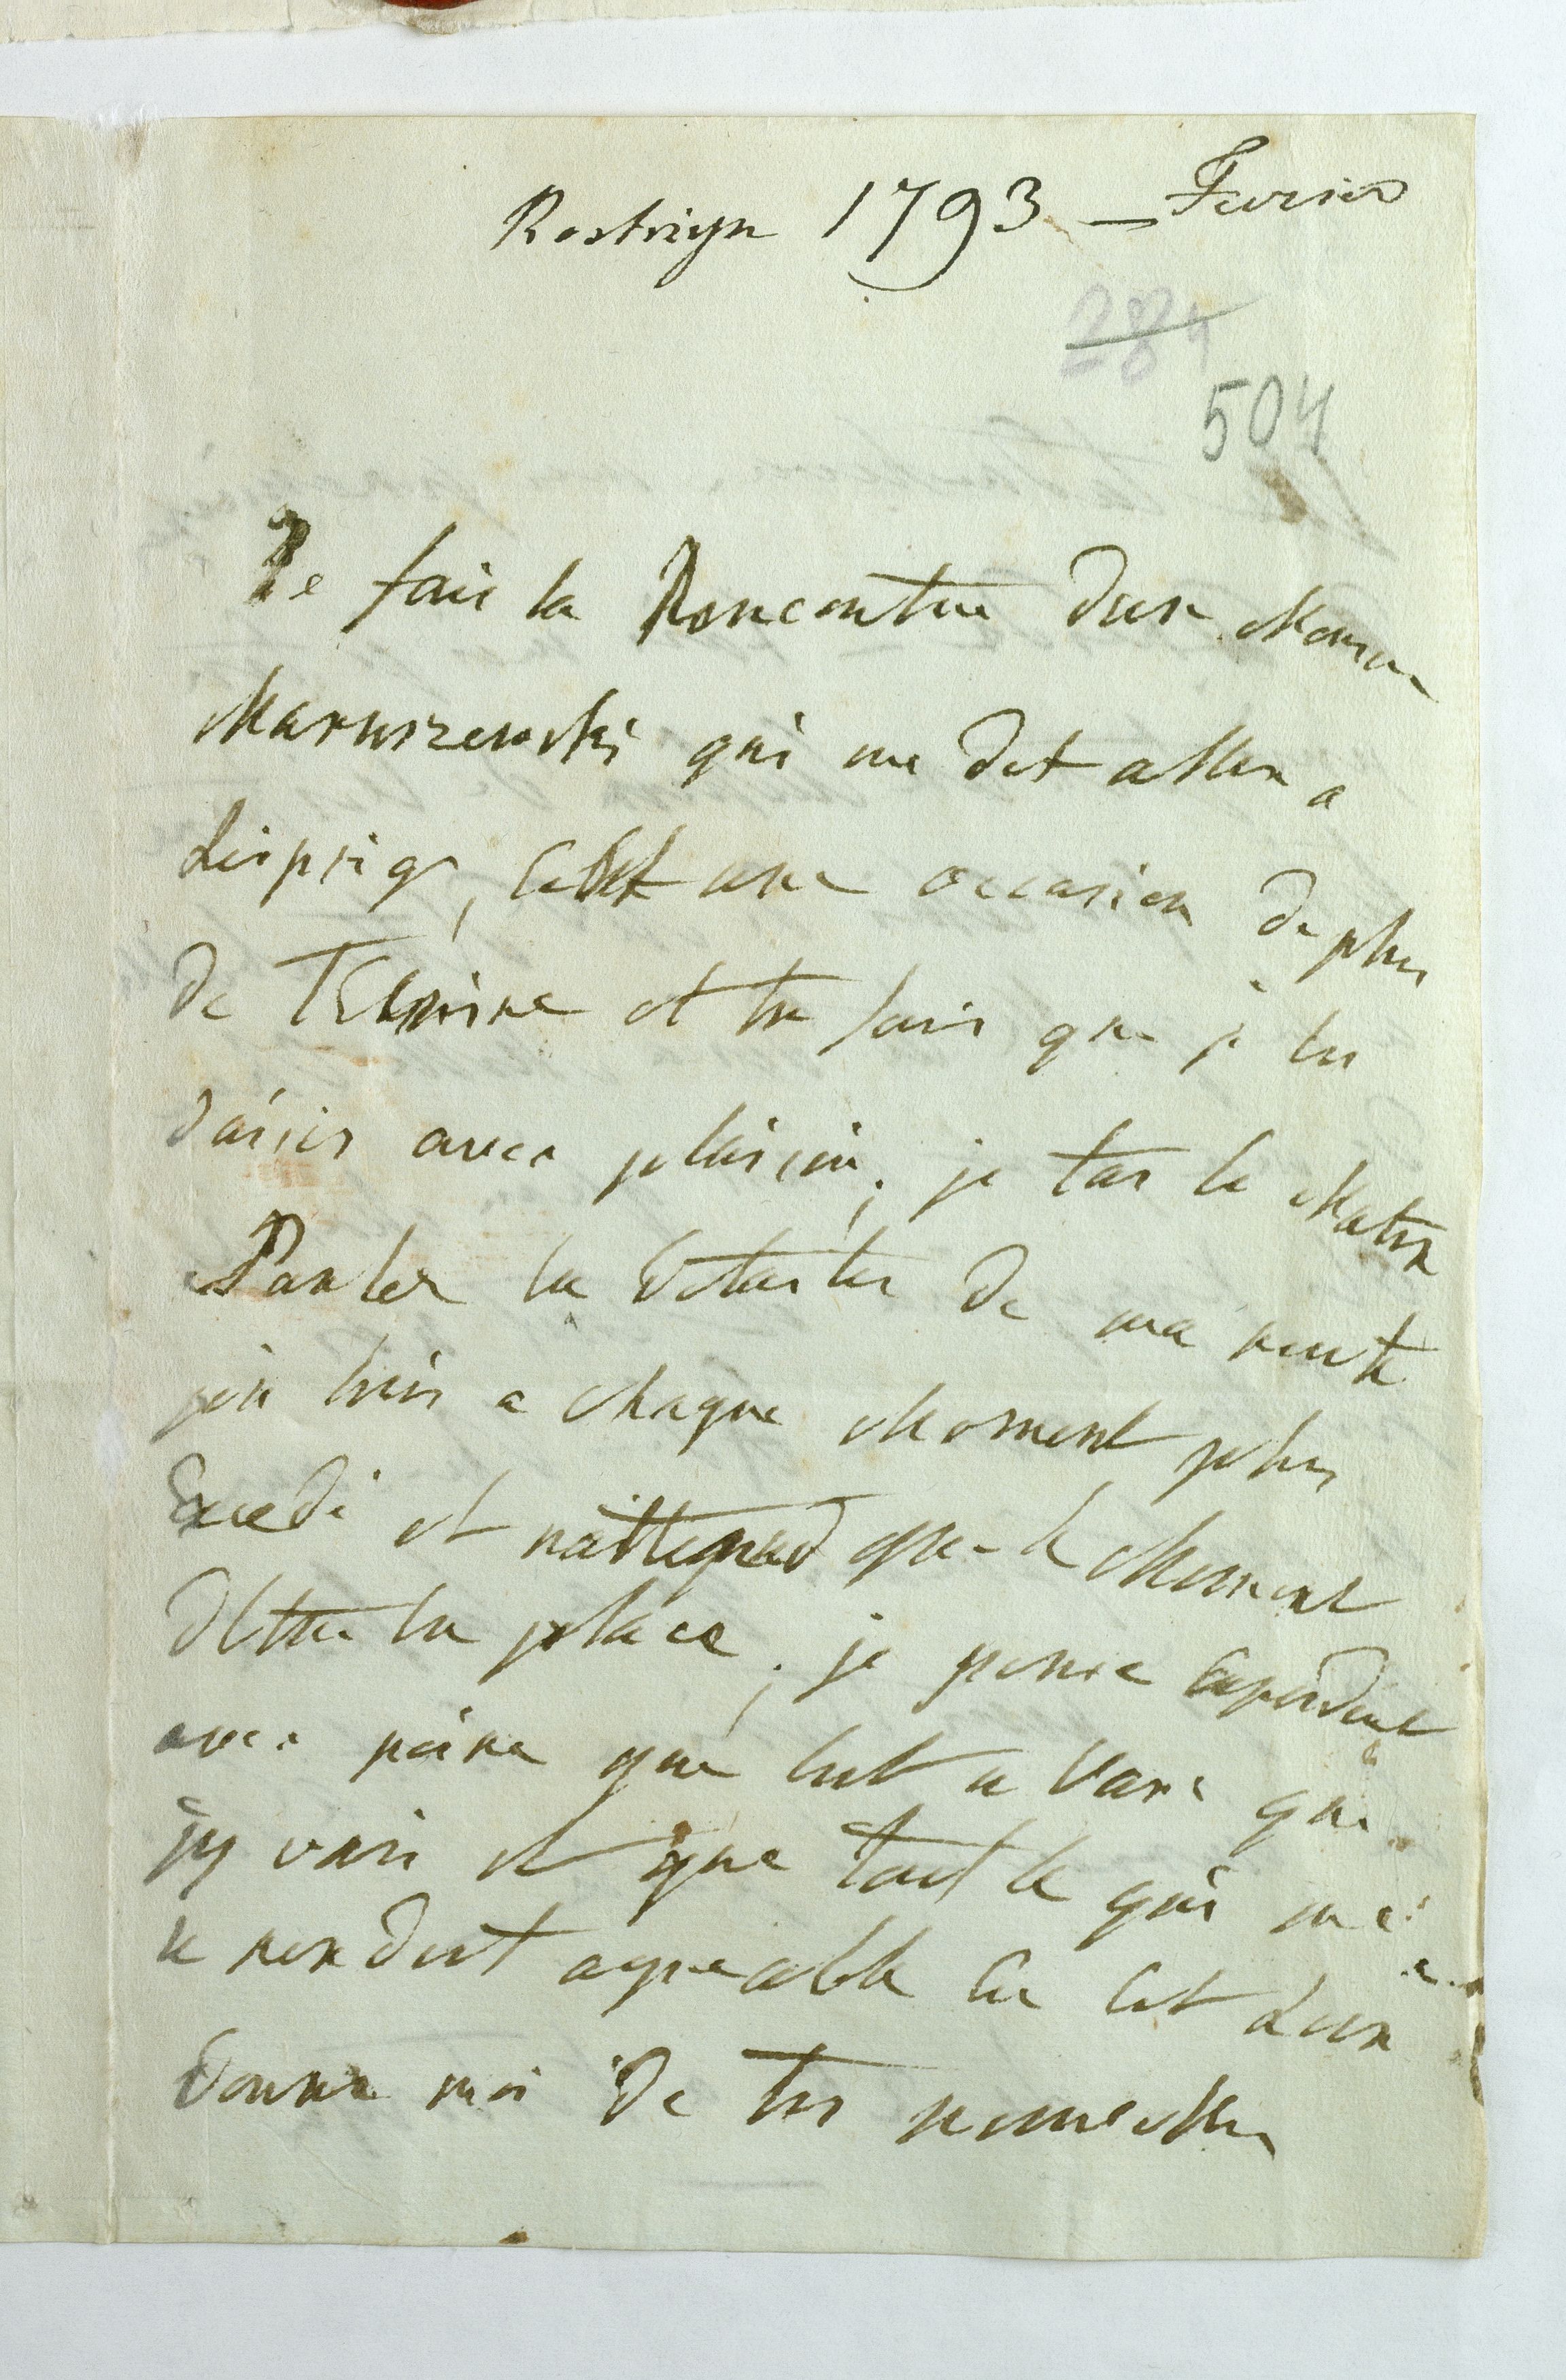 Rostrign 1793 — Fevrier
284
504
Je fais la Rencontre dun Monsieur
Maruszewski qui me dit aller a
Leipsig, Cest une occasion de plus
de TEcrire et tu sais que je les
saisis avec plaisir; je tai le Matin
Parler la detailles de ma route
jen suis a Chaque Moment plus
Excedé et nattegned que le Moment
detre la place; je pense Cependent
avec peine que cest a Vars que
jy vais et que tout le qui me
le rendoit agreable Ce est Loin
Donne moi de tes nouvelles